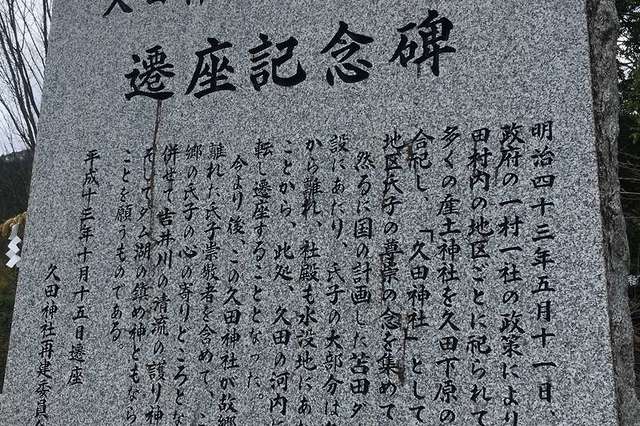 久田神
遷座記念碑
明治四十三年五月十一日、
政府の一村一社の政策により
田村内の地区ごとに祀られて
多くの産土神社を久田下原の
合祀し、「久田神社」として
地区氏子の尊崇の念を集めて
然るに国の計画した苫田ダ
設にあたり、氏子の大部分は
から離れ、社殿も水没地にあ
ことから、此処、久田の河内に
転し遷座することとなった。
今より後、この久田神社が故郷
離れた氏子崇敬者を含めて、
郷の氏子の心の寄りどころとな
併せて吉井川の清流の護り神
そしてダム湖の鎮め神ともなら
ことを願うものである
平成十三年十月十五日遷座
久田神社再建委員会